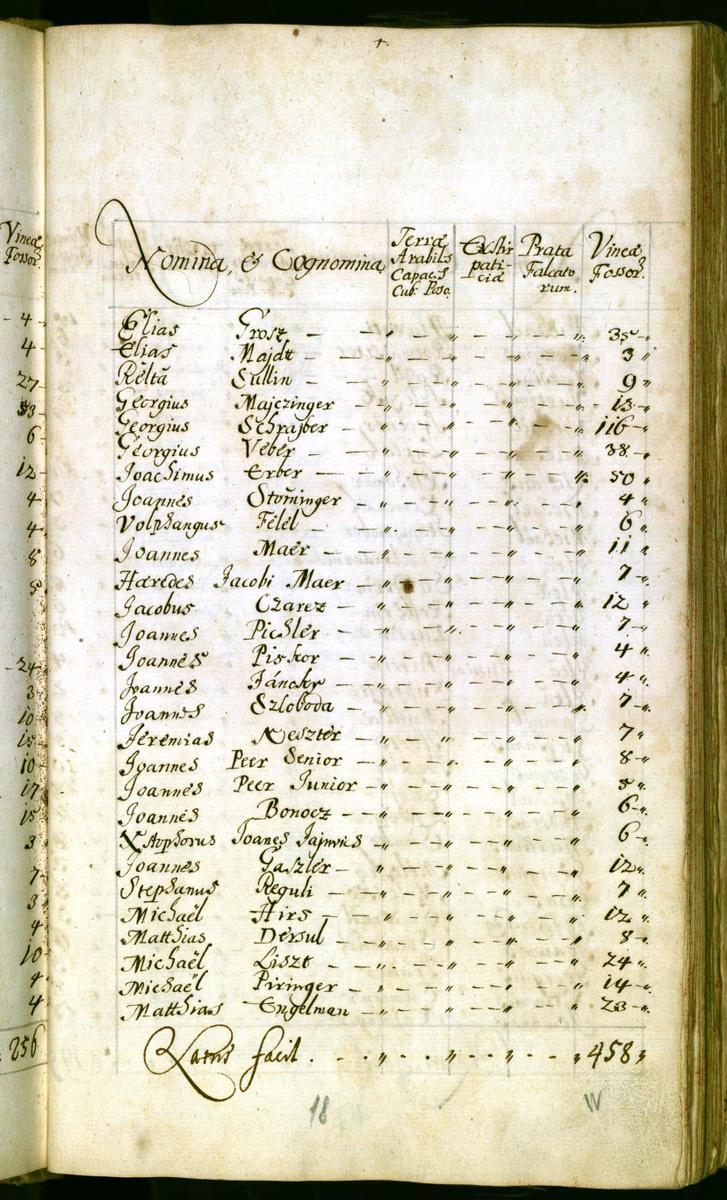 Vineæ
Fossor.
4
4
27
33
6
12
4
4
8
5
24
3
10
15
10
17
15
3
7
3
4
10
4
4
256
Nomina, & Cognomina Terræ Arabilis Capacis Cub. Poso. Exstirpaticiæ Prata Falcatorum. Vineæ Fossor.
Elias Grosz — „ — — „ — — „ — — „ 35 „
Elias Majdt — „ — — „ — — „ — — „ 3 „
Relta Sullin — „ — — „ — — „ — — „ 9 „
Georgius Majczinger — „ — — „ — — „ — — „ 13 „
Georgius Schrajber — „ — — „ — — „ — — „ 116 „
Georgius Veber — „ — — „ — — „ — — „ 38 „
Joachimus Erber — „ — — „ — — „ — — „ 50 „
Joannes Stominger — „ — — „ — — „ — — „ 4 „
Volphangus Félél — „ — — „ — — „ — — „ 6 „
Joannes Maer — „ — — „ — — „ — — „ 11 „
Hæredes Jacobi Maer — „ — — „ — — „ — — „ 7 „
Jacobus Czarez — „ — — „ — — „ — — „ 12 „
Joannes Pichler — „ — — „ — — „ — — „ 7 „
Joannes Piskor — „ — — „ — — „ — — „ 4 „
Joannes Jáncsky — „ — — „ — — „ — — „ 4 „
Joannes Szloboda — „ — — „ — — „ — — „ 7 „
Jeremias Neszter — „ — — „ — — „ — — „ 7 „
Joannes Peer Senior — „ — — „ — — „ — — „ 8 „
Joannes Peer Junior — „ — — „ — — „ — — „ 5 „
Joannes Bonocz — „ — — „ — — „ — — „ 6 „
Joanes — „ — — „ — — „ — — „ 6 „
Joannes Gaszler — „ — — „ — — „ — — „ 12 „
Stephanus Reguli — „ — — „ — — „ — — „ 7 „
Michaël Hirs — „ — — „ — — „ — — „ 12 „
Matthias Dersul — „ — — „ — — „ — — „ 8 „
Michaël Liszt — „ — — „ — — „ — — „ 24 „
Michaël Piringer — „ — — „ — — „ — — „ 14 „
Matthias Engelman — „ — — „ — — „ — — „ 23 „
Latus facit . . . „ . . „ . . „ . . „ 458 „
18